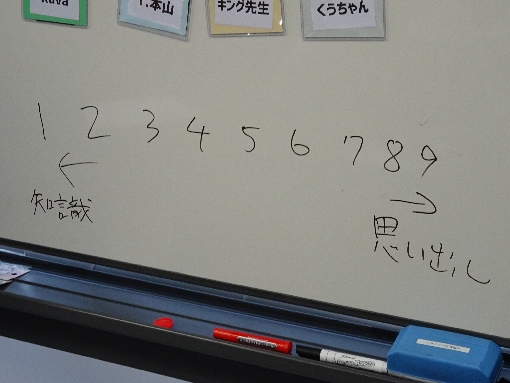 Kuva
T.本山
キング先生
くうちゃん
1 2 3 4 5 6 7 8 9
← →
知識 思い出し